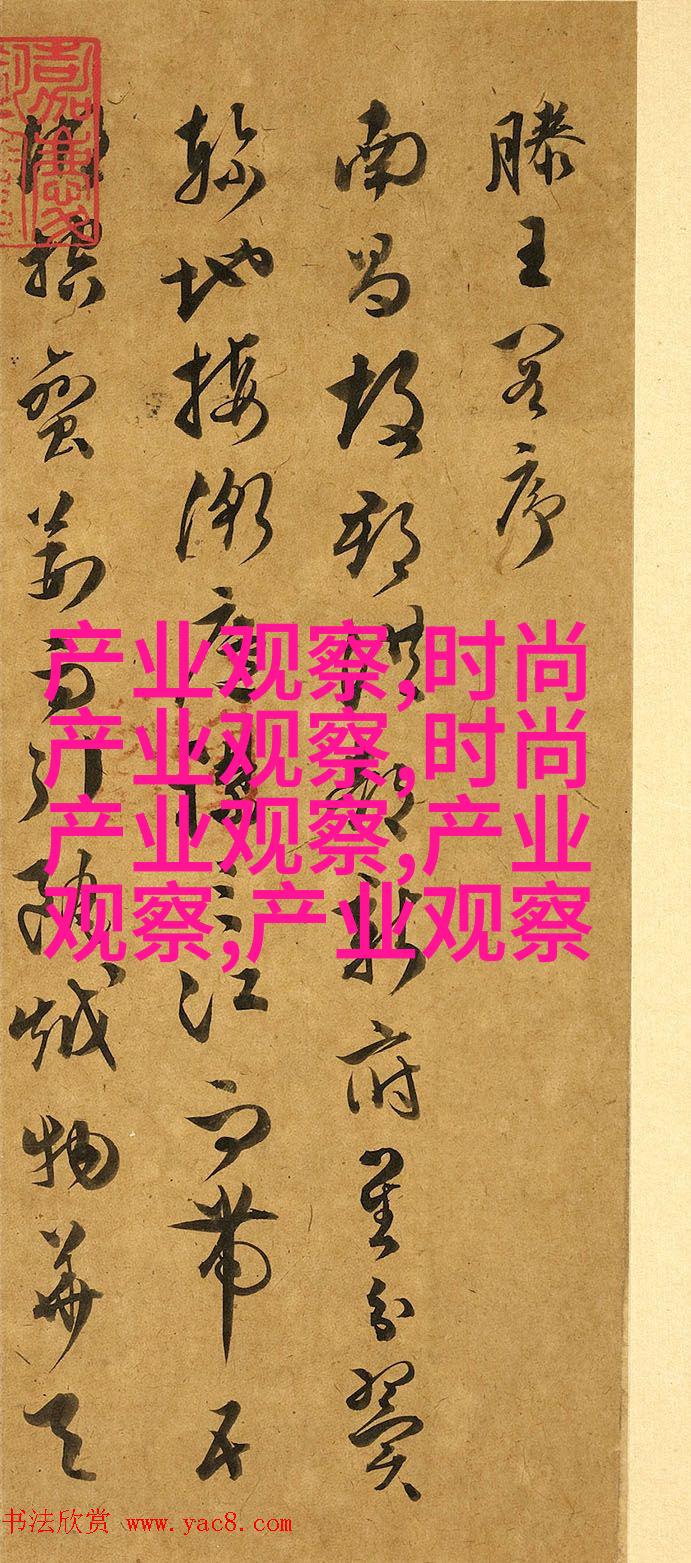 滕王閣序
南昌故郡洪都新府星分翼
軫地接衡廬襟三江而帶五
湖控蠻荊而引甌越物華天
产业观察,时尚
产业观察,时尚
产业观察,产业
观察,产业观察
书法欣赏 www.yac8.com